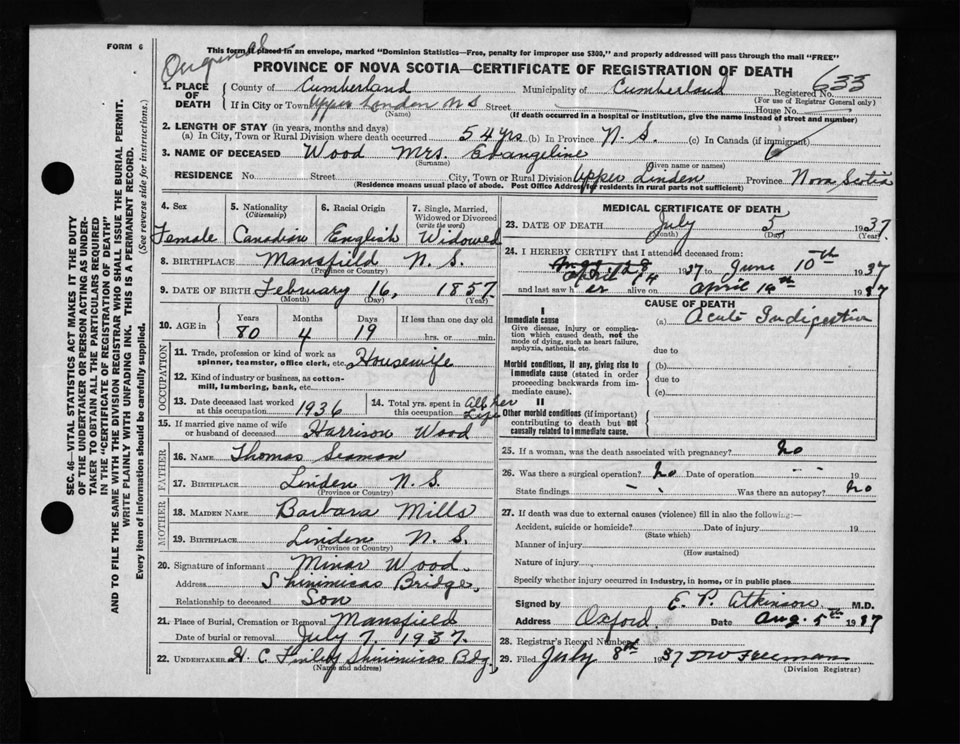 FORM 6
Original
This form if placed in an envelope, marked "Dominion Statistics—Free, penalty for improper use $300," and properly addressed will pass through the mail "FREE"
PROVINCE OF NOVA SCOTIA—CERTIFICATE OF REGISTRATION OF DEATH
633
1. PLACE OF DEATH County of Cumberland Municipality of Cumberland Registered No.
(For use of Registrar General only)
If in City or Town Upper Linden N S Street House No.
(Name) (If death occurred in a hospital or institution, give the name instead of street and number)
2. LENGTH OF STAY (in years, months and days)
(a) In City, Town or Rural Division where death occurred 54 yrs (b) In Province N. S. (c) In Canada (if immigrant)
3. NAME OF DECEASED Wood Mrs. Evangeline
(Surname) (Given name or names)
RESIDENCE No. Street City, Town or Rural Division Upper Linden Province Nova Scotia
(Residence means usual place of abode. Post Office Address for residents in rural parts not sufficient)
4. Sex Female
5. Nationality (Citizenship) Canadian
6. Racial Origin English
7. Single, Married, Widowed or Divorced (write the word) Widowed
8. BIRTHPLACE Mansfield N. S.
(Province or Country)
9. DATE OF BIRTH February 16, 1857
(Month) (Day) (Year)
10. AGE in Years Months Days If less than one day old
80 4 19 hrs. or min.
OCCUPATION
11. Trade, profession or kind of work as spinner, teamster, office clerk, etc. Housewife
12. Kind of industry or business, as cotton-mill, lumbering, bank, etc.
13. Date deceased last worked at this occupation 1936
14. Total yrs. spent in this occupation All her Life
15. If married give name of wife or husband of deceased Harrison Wood
FATHER
16. NAME Thomas Seaman
17. BIRTHPLACE Linden N. S.
(Province or Country)
MOTHER
18. MAIDEN NAME Barbara Mills
19. BIRTHPLACE Linden N. S.
(Province or Country)
20. Signature of informant Minar Wood
Address Shinimicas Bridge,
Relationship to deceased Son
21. Place of Burial, Cremation or Removal Mansfield
Date of burial or removal July 7, 1937.
22. UNDERTAKER H. C. Finley Shinimicas Bdg,
(Name and address)
MEDICAL CERTIFICATE OF DEATH
23. DATE OF DEATH July 5 1937.
(Month) (Day) (Year)
24. I HEREBY CERTIFY that I attended deceased from:
1937 to June 10th 1937
and last saw h er alive on April 14th 1937
CAUSE OF DEATH
I
Immediate cause (a) Acute Indigestion
Give disease, injury or complication which caused death, not the mode of dying, such as heart failure, asphyxia, asthenia, etc.
due to
Morbid conditions, if any, giving rise to immediate cause (stated in order proceeding backwards from immediate cause).
(b)
due to
(c)
II
Other morbid conditions (if important) contributing to death but not causally related to immediate cause.
25. If a woman, was the death associated with pregnancy? no
26. Was there a surgical operation? No Date of operation - - 19
State findings - - Was there an autopsy? No
27. If death was due to external causes (violence) fill in also the following:—
Accident, suicide or homicide? Date of injury 19
(State which)
Manner of injury
(How sustained)
Nature of injury
Specify whether injury occurred in industry, in home, or in public place
Signed by E. P. Atkinson M.D.
Address Oxford. Date Aug. 5th 1937
28. Registrar's Record Number
29. Filed July 8th 1937 D W Freeman
(Division Registrar)
SEC. 46—VITAL STATISTICS ACT MAKES IT THE DUTY
OF THE UNDERTAKER OR PERSON ACTING AS UNDERTAKER TO OBTAIN ALL THE PARTICULARS REQUIRED
IN THE "CERTIFICATE OF REGISTRATION OF DEATH"
AND TO FILE THE SAME WITH THE DIVISION REGISTRAR WHO SHALL ISSUE THE BURIAL PERMIT.
WRITE PLAINLY WITH UNFADING INK. THIS IS A PERMANENT RECORD.
Every item of Information should be carefully supplied. (See reverse side for instructions.)